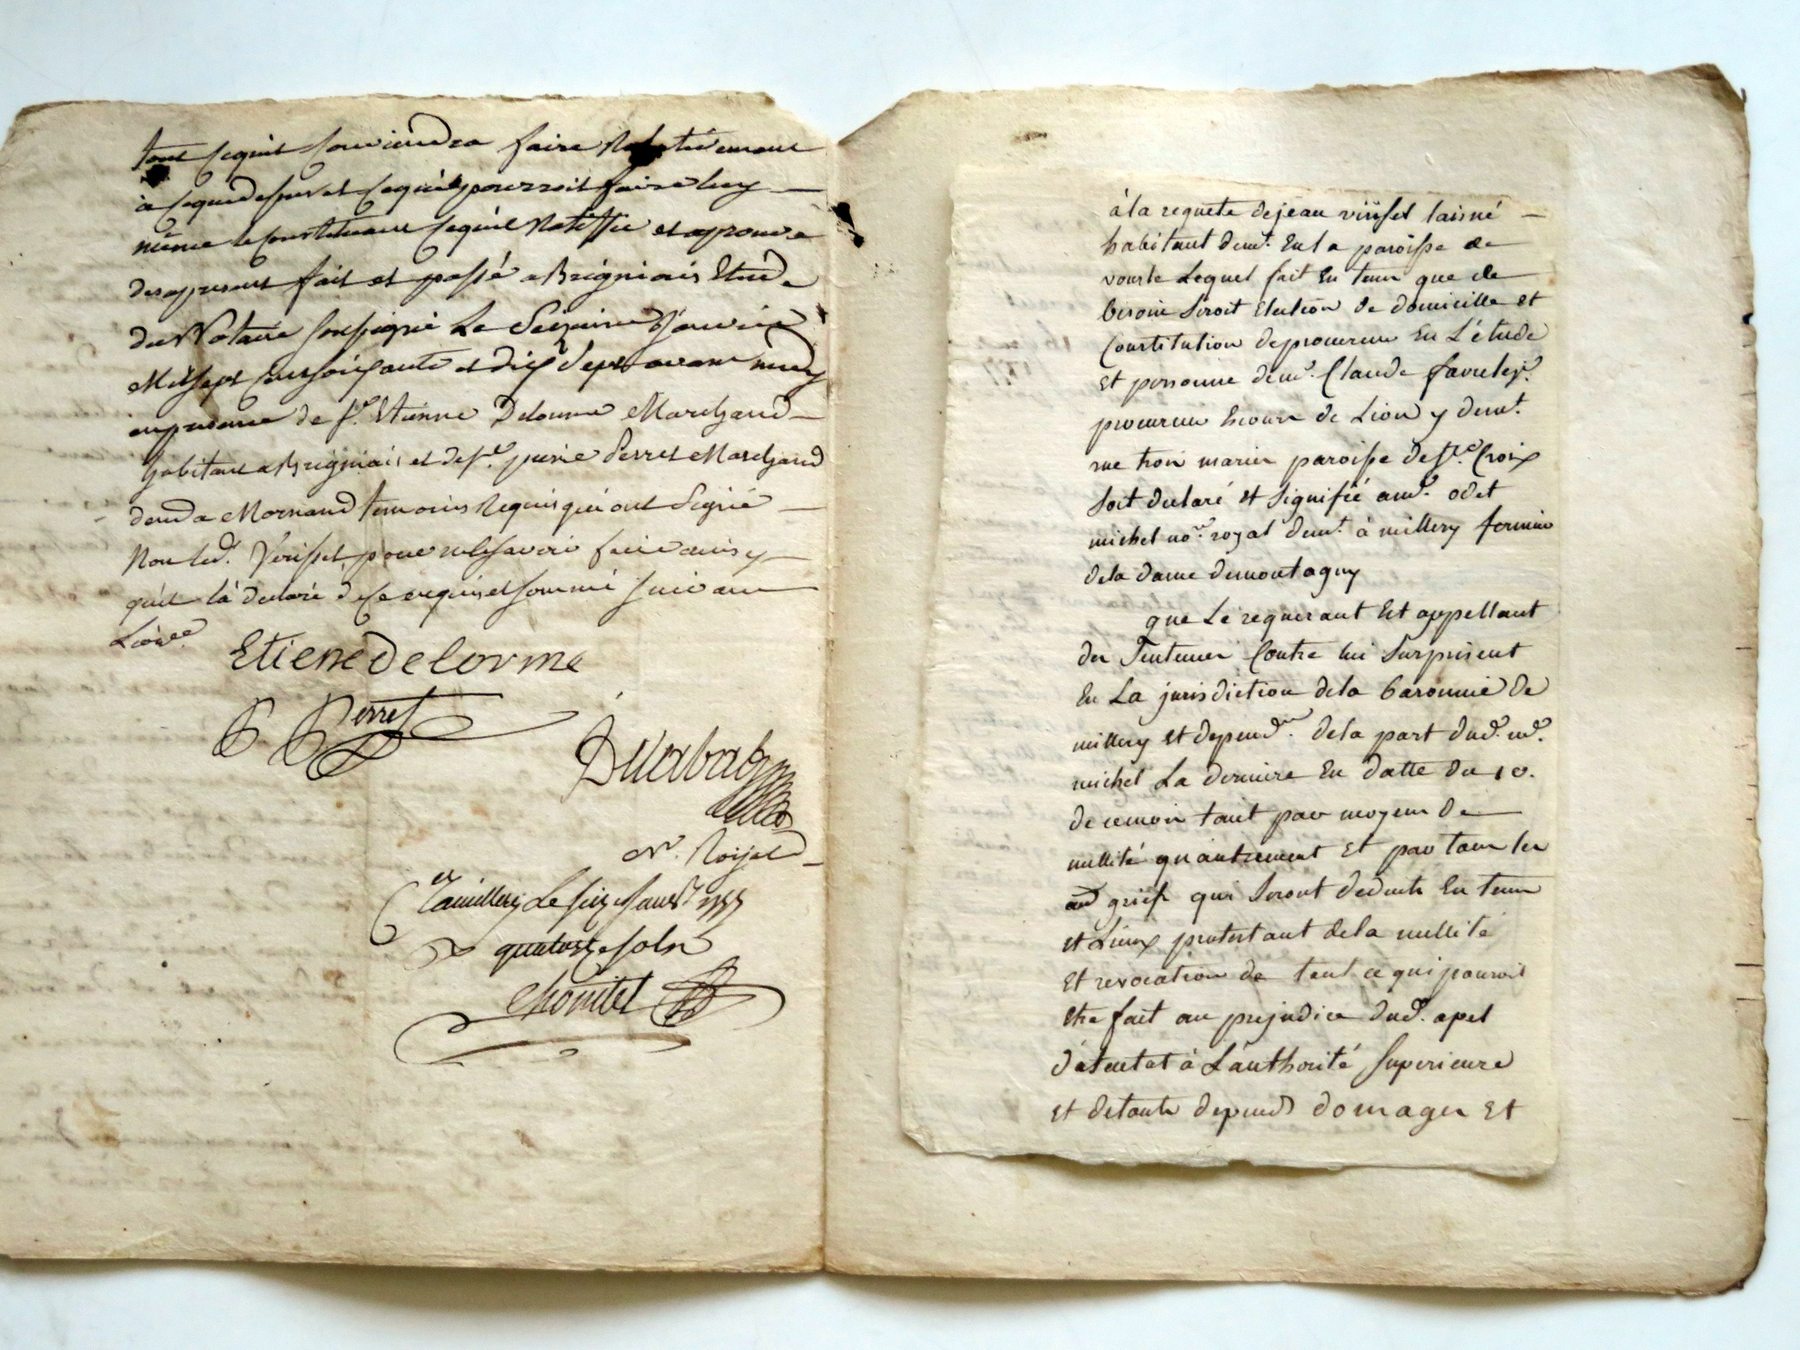 tout ce quil conviendra faire Relativement
à ce que dessus et ce quil pourroit faire luy
même le constituant ce quil Ratiffie et aprouve
des apresent fait et passé a Brigniais Etude
du Notaire soussigné Le Seizieme Janvier
Mil sept cent soixante et dix sept avant midy
en presence de sr. Etienne Delorme Marchand
habitant a Brigniais et de sr. pierre Perret Marchand
de Mornand temoins Requis qui ont Signé
Non led. Vérisset pour ne le savoir faire ainsy
quil la declaré de ce enquis et sommé suivant
Etiene Delorme
Perret
nre. Roijal
quatorze sols
à la requete de jean laisné
habitant demt. En la paroisse de
vourle Lequel fait En tems que de
besoin Seroit Election de domicille et
Constitution de procureur En L'étude
et personne de me. Claude favre
procureur Ecour de Lion y demt.
rue trois maries paroisse de Ste. Croix
soit declaré et signifié a me. odet
michel nore. royal demt. à millery fermier
dela dame demontagny
que Le requerant Est appellant
des Sentences Contre lui Surprisent
En La jurisdiction dela baronnie de
millery et depend. dela part dud. me.
michel La derniere En datte du 10.
de ce mois tant par moyen de
nullité qu'autrement et par tous les
griefs qui Seront deduits En tems
et Lieux protestant dela nullité
Et revocation de tout ce qui pouroit
Etre fait au prejudice dud. apel
d'atentat à L'authorité Superieure
et detouts depends domages et